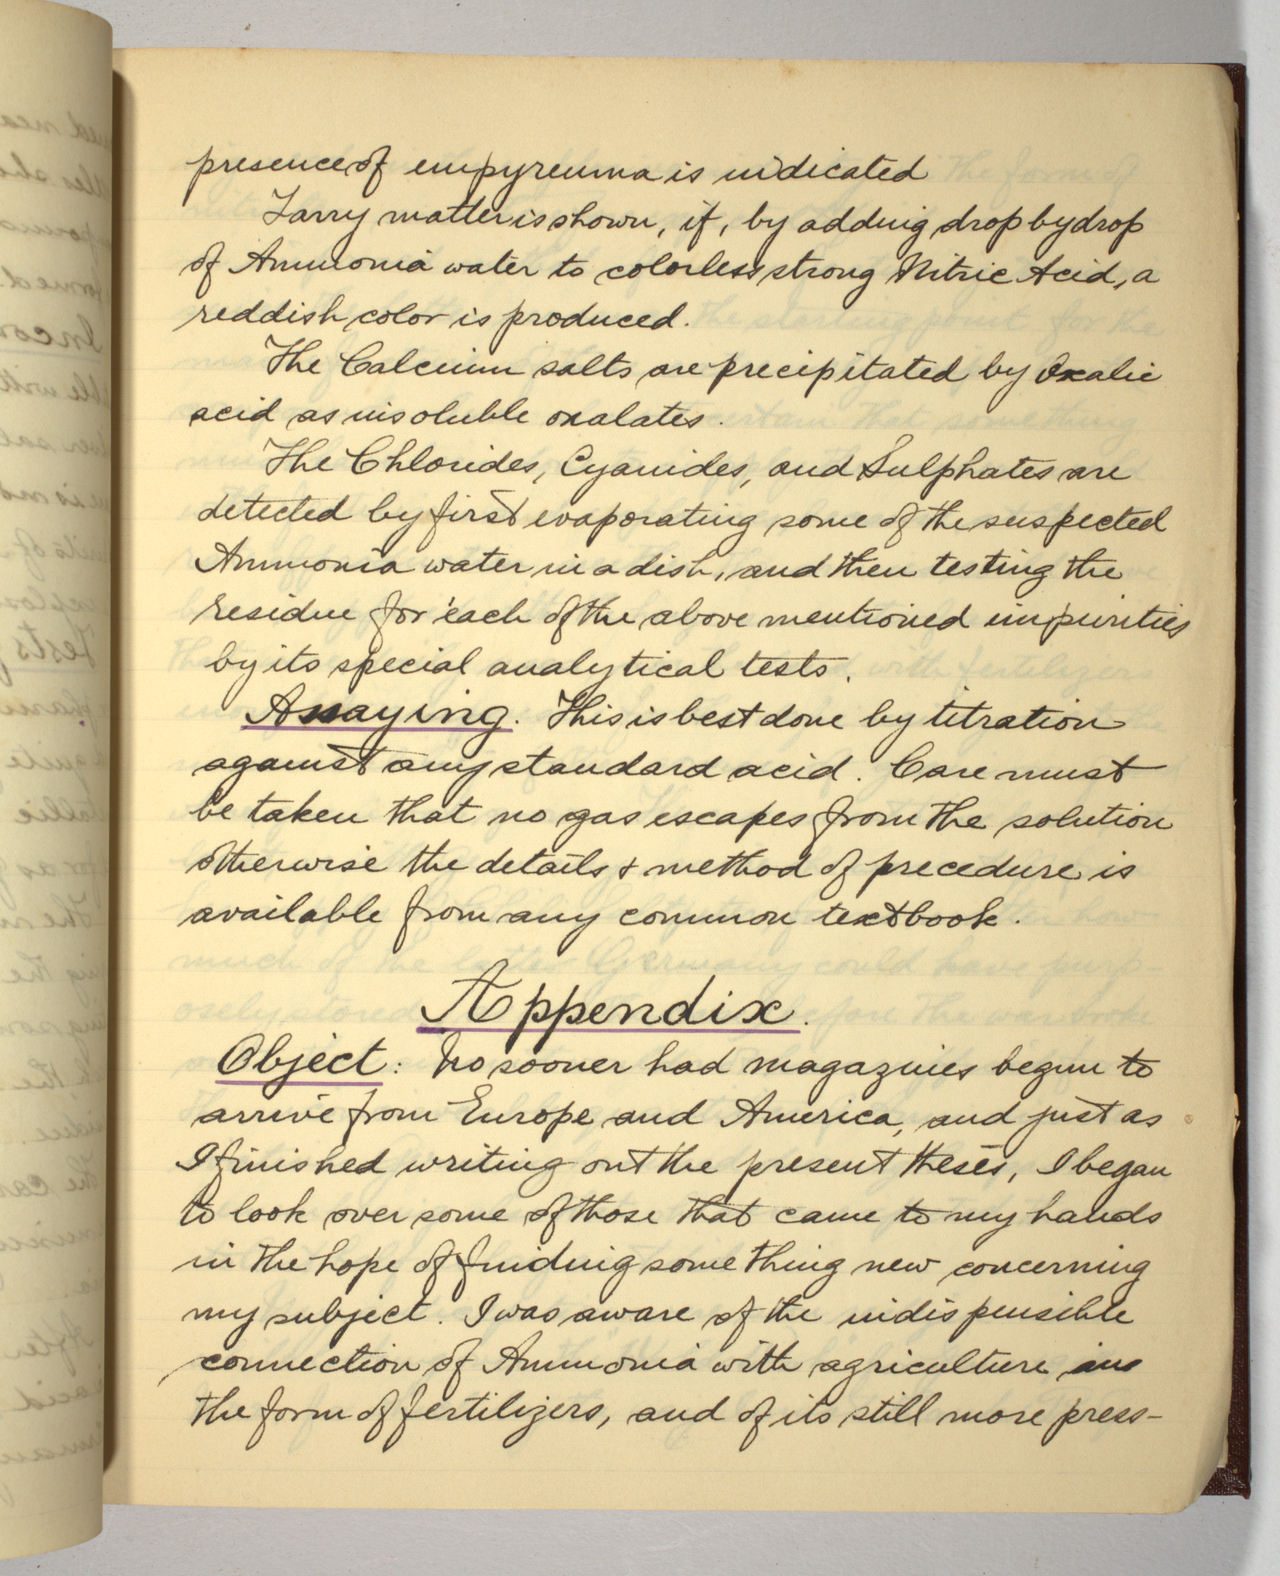 presence of empyreuma is indicated
Tarry matter is shown, if, by adding drop by drop
of Ammonia water to colorless strong Nitric Acid, a
reddish color is produced.
The Calcium salts are precipitated by Oxalic
acid as insoluble oxalates.
The Chlorides, Cyanides, and Sulphates are
detected by first evaporating some of the suspected
Ammonia water in a dish, and then testing the
residue for each of the above mentioned impurities
by its special analytical tests.
Assaying. This is best done by titration
against any standard acid. Care must
be taken that no gas escapes from the solution
otherwise the details & method of precedure is
available from any common textbook.
Appendix.
Object: No sooner had magazines begun to
arrive from Europe and America, and just as
I finished writing out the present thesis, I began
to look over some of those that came to my hands
in the hope of finding something new concerning
my subject. I was aware of the indispensible
connection of Ammonia with agriculture in
the form of fertilizers, and of its still more press-